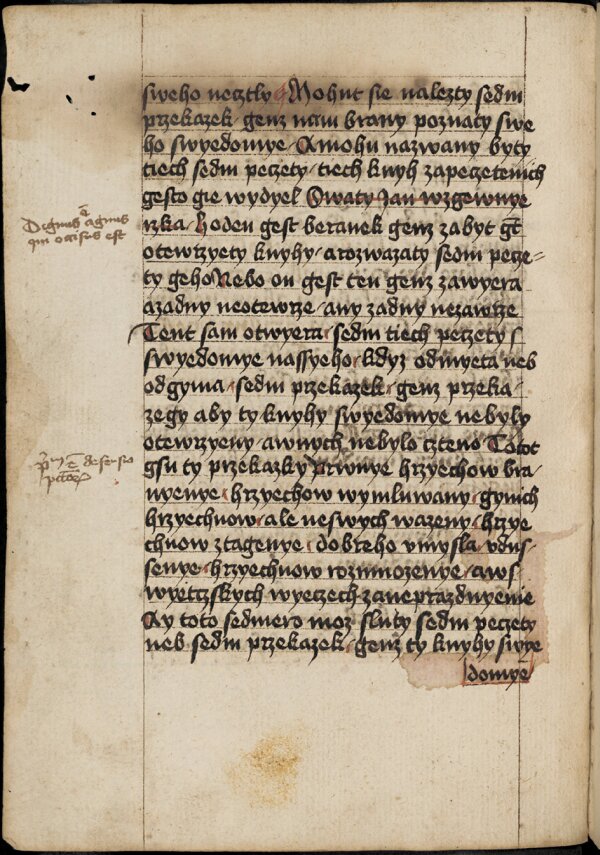 sweho necztly Mohut sie nalezty sedm
przekazek genz nam brany poznaty swe
ho swyedomye A mohu nazwany byty
tiech sedm peczety tiech knyh zapeczetenich
gesto gie wydyel Swaty Jan w zgewnye
Dignus ē agnus
qui occisus est
nzka hoden gest beranek genz zabyt gt
otewrzyety knyhy a rozwazaty sedm pecze=
ty geho Nebo on gest ten genz zawyera
a zadny neotewrze any zadny nezawrze
Tent sam otwyera sedm tiech peczety s
swyedomye nassyeho kdyz odmyeta neb
odgyma sedm przekazek genz przeka
zegy aby ty knyhy swyedomye nebyly
otewrzyeny a wnych nebylo czteno Totot
gsu ty przekazky Prwnye hrzyechow bra
nyenye hrzyechow wymluwany gynich
hrzyechuow ale neswych wazeny hrzye
chuow ztagenye dobreho vmysla vdus
senye hrzyechuow rozmnozenye a w s
wyetzskych wyeczech zaneprazdnyenie
Ay toto sedmero moz sluty sedm peczety
neb sedm przekazek genz ty knyhy swye
domye